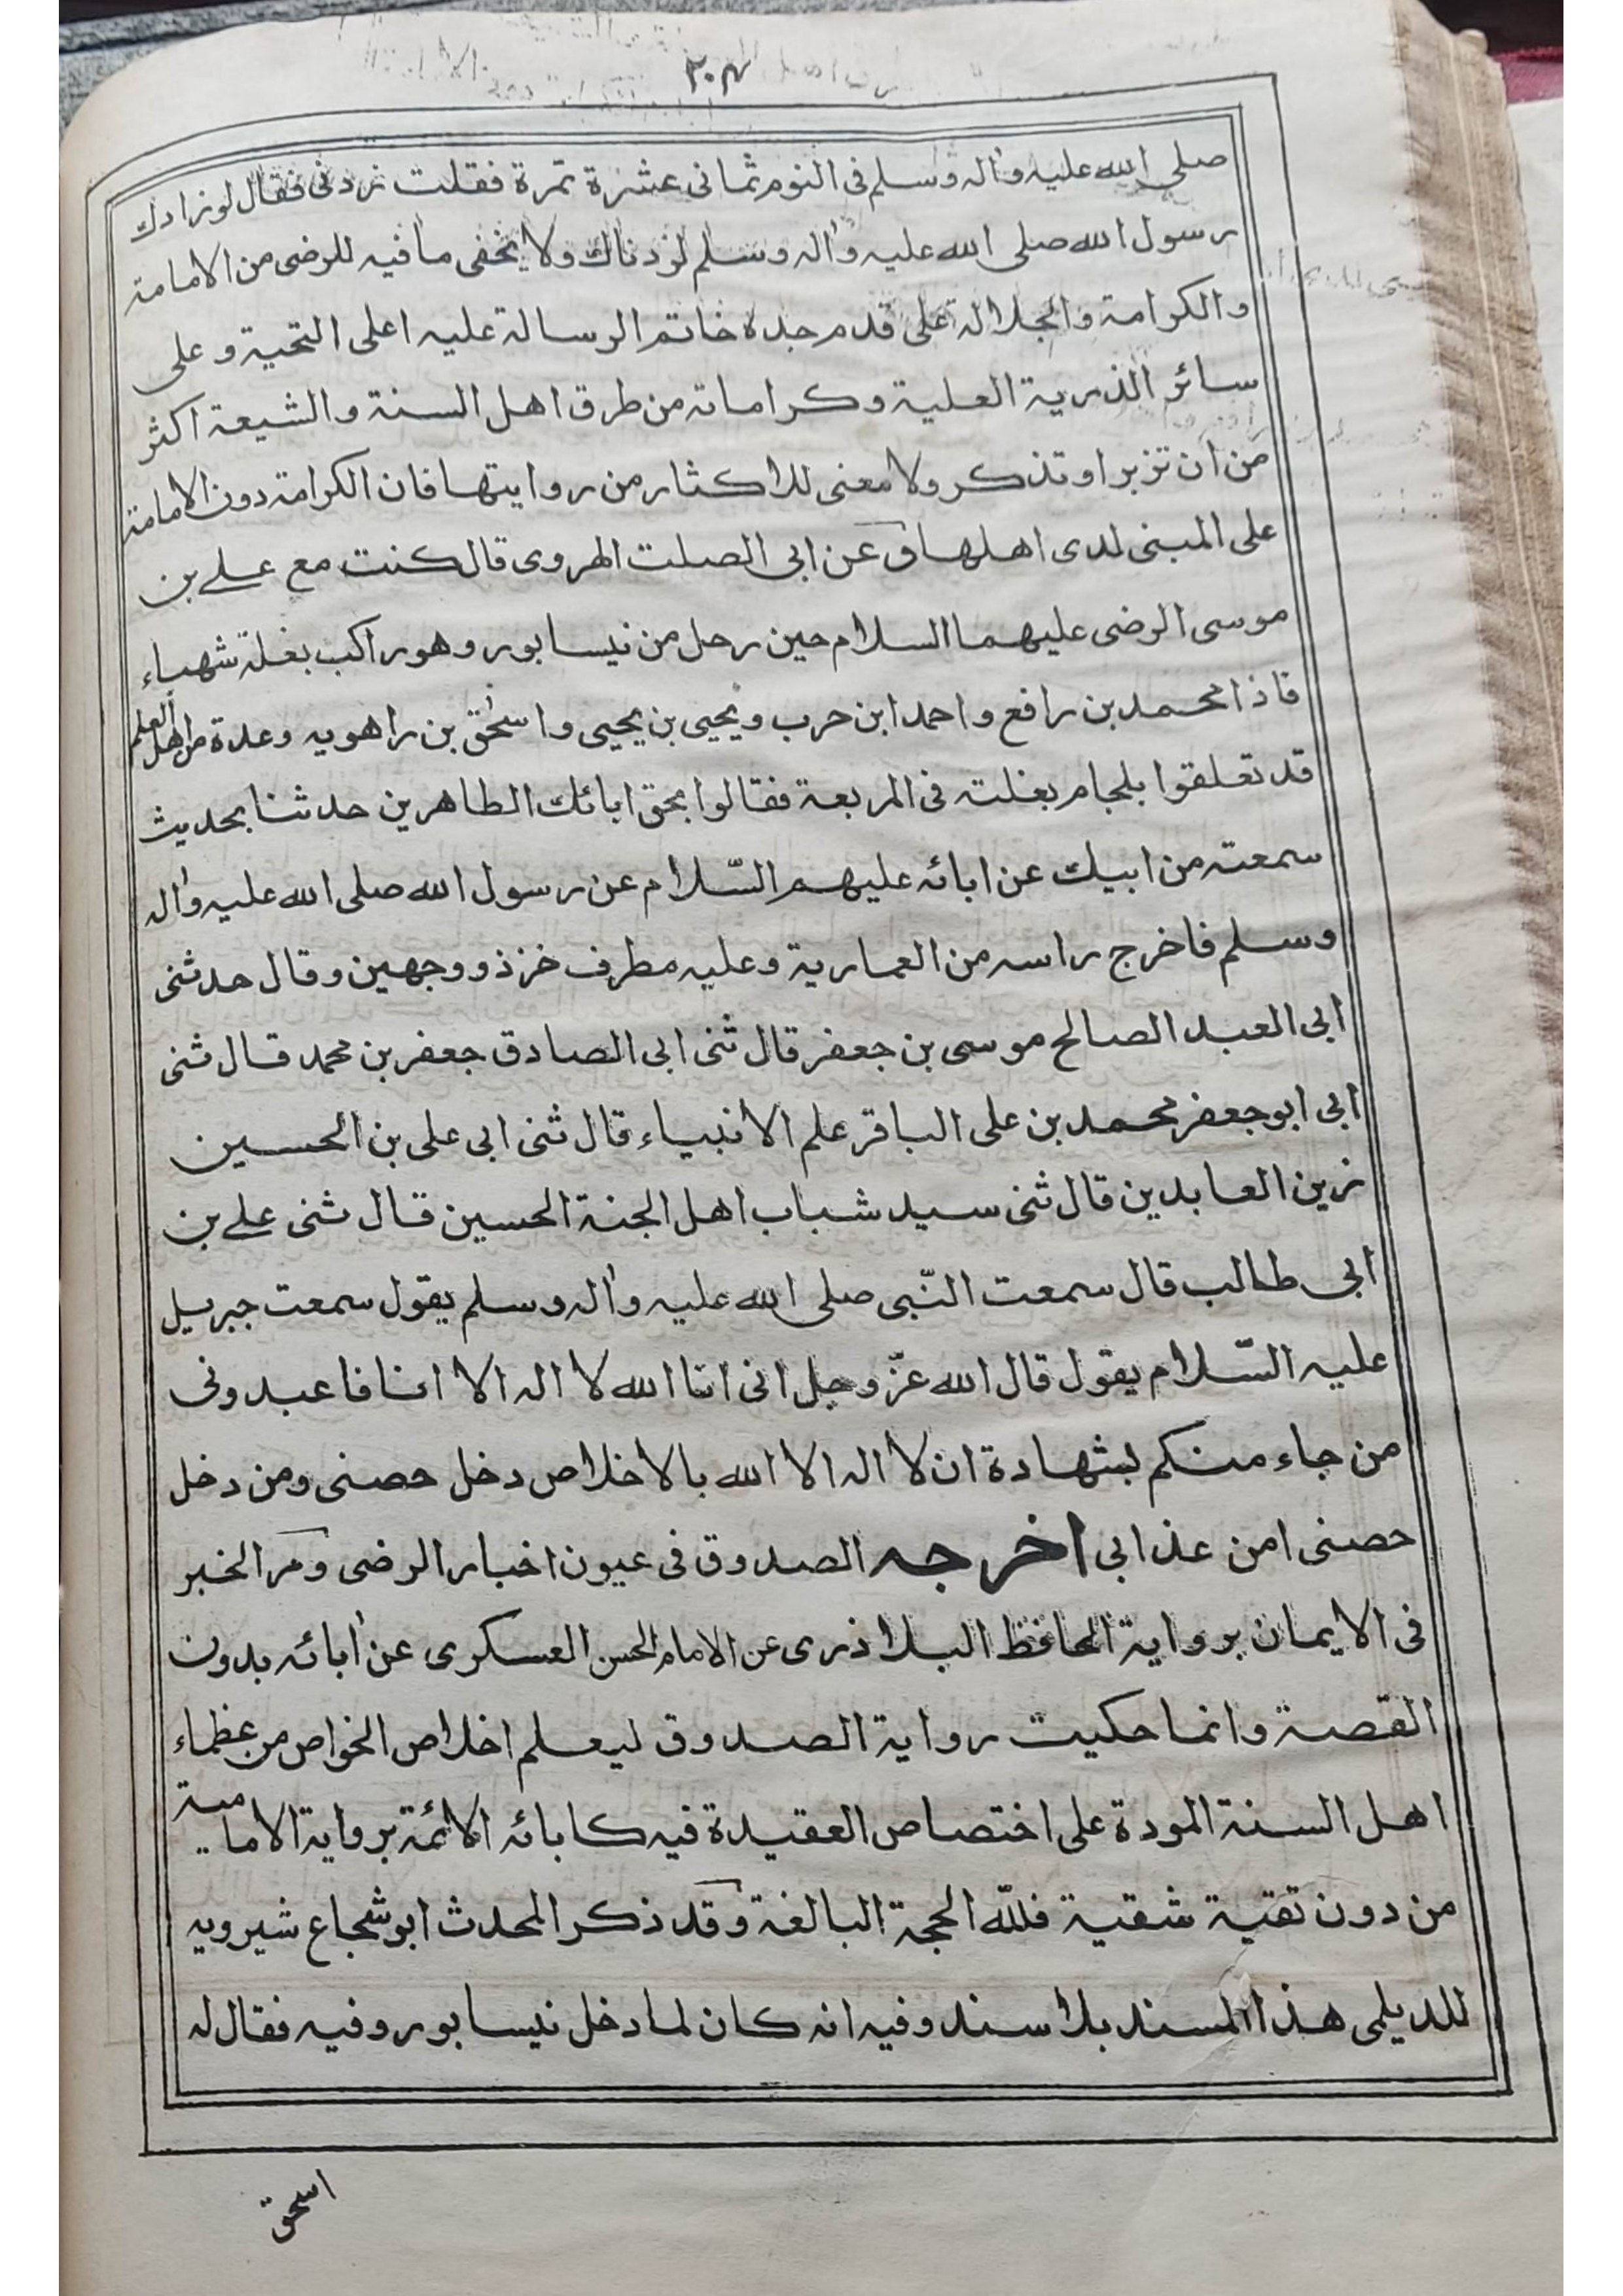 ٢٠٤
صلى الله عليه واله وسلم فى النوم ثمانى عشرة تمرة فقلت زدنى فقال لو زادك
رسول الله صلى الله عليه واله وسلم لزدناك ولا يخفى ما فيه للرضى من الامامة
والكرامة والجلالة على قدم جده خاتم الرسالة عليه اعلى التحية وعلى
سائر الذرية العلية وكراماته من طرق اهل السنة والشيعة اكثر
من ان تزبر او تذكر ولا معنى للاكثار من روايتها فان الكرامة دون الامامة
على المبنى لدى اهلها وعن ابى الصلت الهروى قال كنت مع على بن
موسى الرضى عليهما السلام حين رحل من نيسابور وهو راكب بغلة شهباء
فاذا محمد بن رافع واحمد ابن حرب ويحيى بن يحيى واسحٰق بن راهويه وعدة من اهل العلم
قد تعلقوا بلجام بغلته فى المربعة فقالوا بحق ابائك الطاهرين حدثنا بحديث
سمعته من ابيك عن ابائه عليهم السّلام عن رسول الله صلى الله عليه واله
وسلم فاخرج راسه من العمارية وعليه مطرف خز ذو وجهين وقال حدثنى
ابى العبد الصالح موسى بن جعفر قال ثنى ابى الصادق جعفر بن محمد قال ثنى
ابى ابو جعفر محمد بن على الباقر علم الانبياء قال ثنى ابى على بن الحسين
زين العابدين قال ثنى سيد شباب اهل الجنة الحسين قال ثنى على بن
ابى طالب قال سمعت النّبى صلى الله عليه واله وسلم يقول سمعت جبريل
عليه السّلام يقول قال الله عزّ وجل انى انا الله لا اله الا انا فاعبدونى
من جاء منكم بشهادة ان لا اله الا الله بالاخلاص دخل حصنى ومن دخل
حصنى امن عذابى اخرجه الصدوق فى عيون اخبار الرضى ومر الخبر
فى الايمان برواية الحافظ البلاذرى عن الامام الحسن العسكرى عن ابائه بدون
القصة وانما حكيت رواية الصدوق ليعلم اخلاص الخواص من عظماء
اهل السنة المودة على اختصاص العقيدة فيه كابائه الائمة برواية الامامية
من دون تقية شقية فللّه الحجة البالغة وقد ذكر المحدث ابو شجاع شيرويه
للديلمى هذا المسند بلا سند وفيه انه كان لما دخل نيسابور وفيه فقال له
اسحق